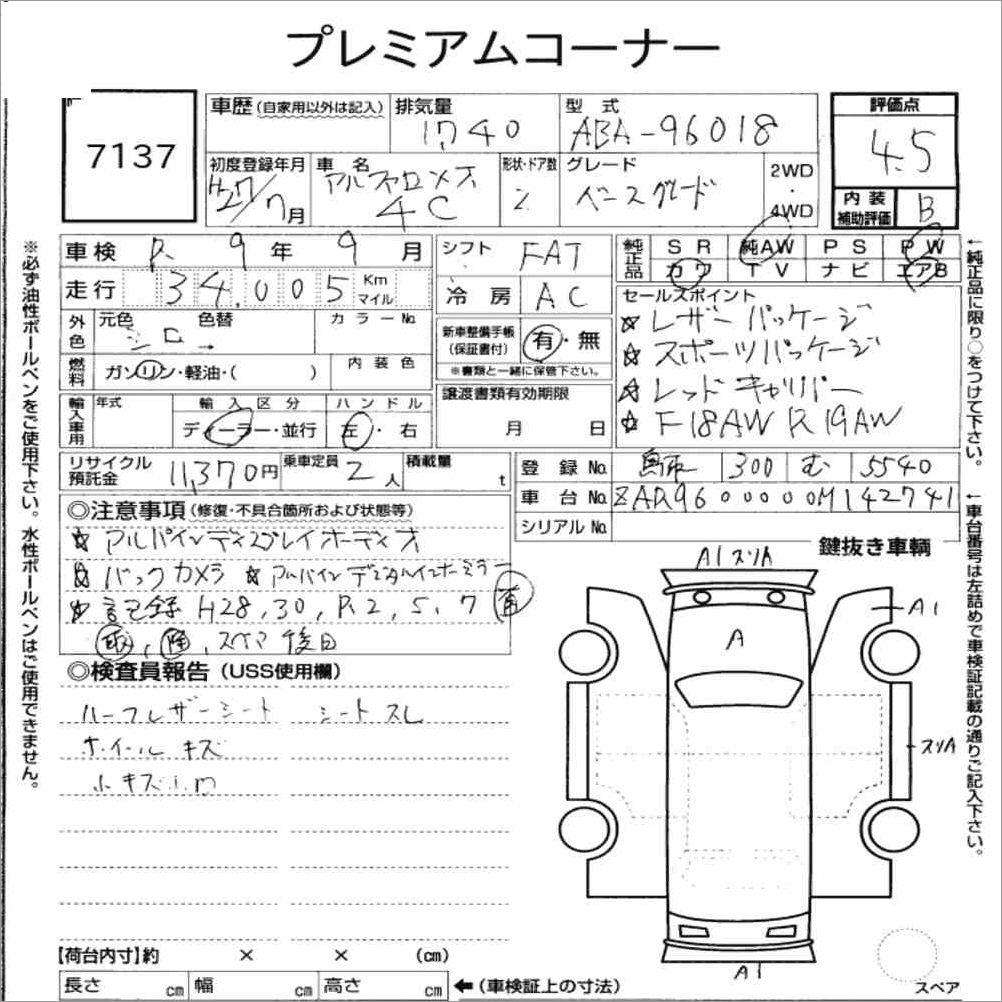 プレミアムコーナー
7137
車歴(自家用以外は記入)
排気量
1,740
型式
ABA-96018
評価点
4.5
初度登録年月
H27/7月
車名
アルファロメオ
4C
形状・ドア数
2
グレード
ベースグレード
2WD
・
4WD
内装
補助評価
B
車検 R. 9年 9月
シフト FAT
純正品
SR 純AW PS PW
カワ TV ナビ エアB
走行 34,005 Km マイル
冷房 AC
外色
元色 シロ → 色替
カラーNo.
セールスポイント
☆ レザーパッケージ
☆ スポーツパッケージ
☆ レッドキャリパー
☆ F18AW R19AW
新車整備手帳
(保証書付)
有・無
※書類と一緒に保管下さい。
燃料
ガソリン・軽油・( )
内装色
譲渡書類有効期限
月 日
輸入車用
年式
輸入区分
ディーラー・並行
ハンドル
左・右
リサイクル
預託金
11,370円
乗車定員 2人
積載量 t
登録No. 300 む 5540
車台No. ZAR9600000M142741
シリアルNo.
◎注意事項(修復・不具合箇所および状態等)
☆ アルパインディスプレイオーディオ
☆ バックカメラ ☆ アルパインデジタルインナーミラー
☆ 記録 H28,30,R2,5,7 有
取, スペア 後日
鍵抜き車輌
◎検査員報告(USS使用欄)
ハーフレザーシート シートスレ
ホイールキズ
小キズ
A1 スリA
A
A1
スリA
A1
スペア
【荷台内寸】約 × × (cm)
長さ cm 幅 cm 高さ cm
←(車検証上の寸法)
※必ず油性ボールペンをご使用下さい。水性ボールペンはご使用できません。
←純正品に限り○をつけて下さい。
←車台番号は左詰めで車検証記載の通りご記入下さい。